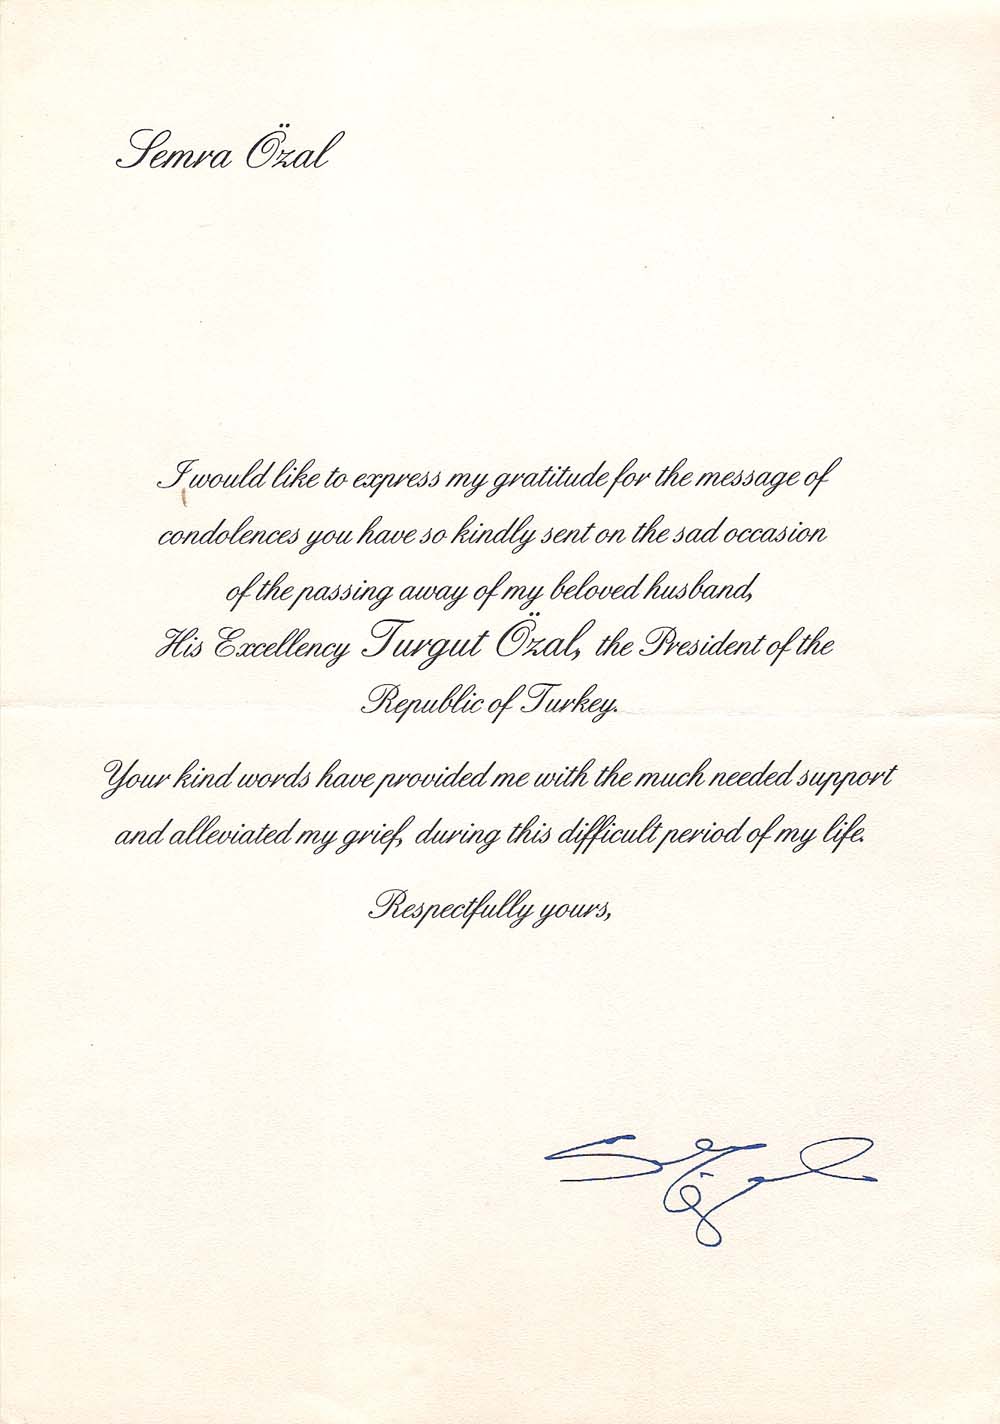 Semra Özal
I would like to express my gratitude for the message of
condolences you have so kindly sent on the sad occasion
of the passing away of my beloved husband,
His Excellency Turgut Özal, the President of the
Republic of Turkey.
Your kind words have provided me with the much needed support
and alleviated my grief, during this difficult period of my life.
Respectfully yours,